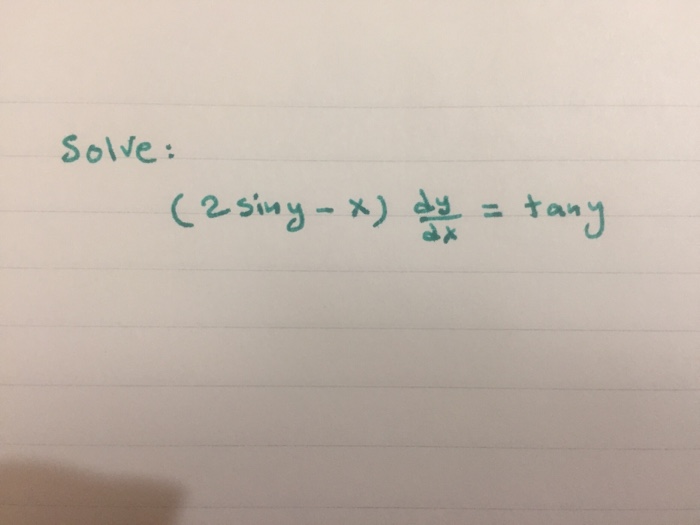 Solve:
(2 sin y - x) dy/dx = tan y